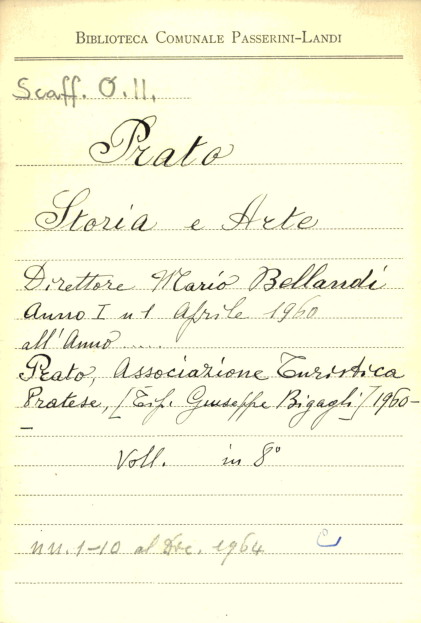 BIBLIOTECA COMUNALE PASSERINI-LANDI
Scaff. O.11.
Prato
Storia e Arte
Direttore Mario Bellandi
Anno I n 1 Aprile 1960
all'Anno .....
Prato, Associazione Turistica
Pratese, [Tip. Giuseppe Bigagli] 1960-
-
Voll. in 8°
nn. 1-10 al Dic. 1964